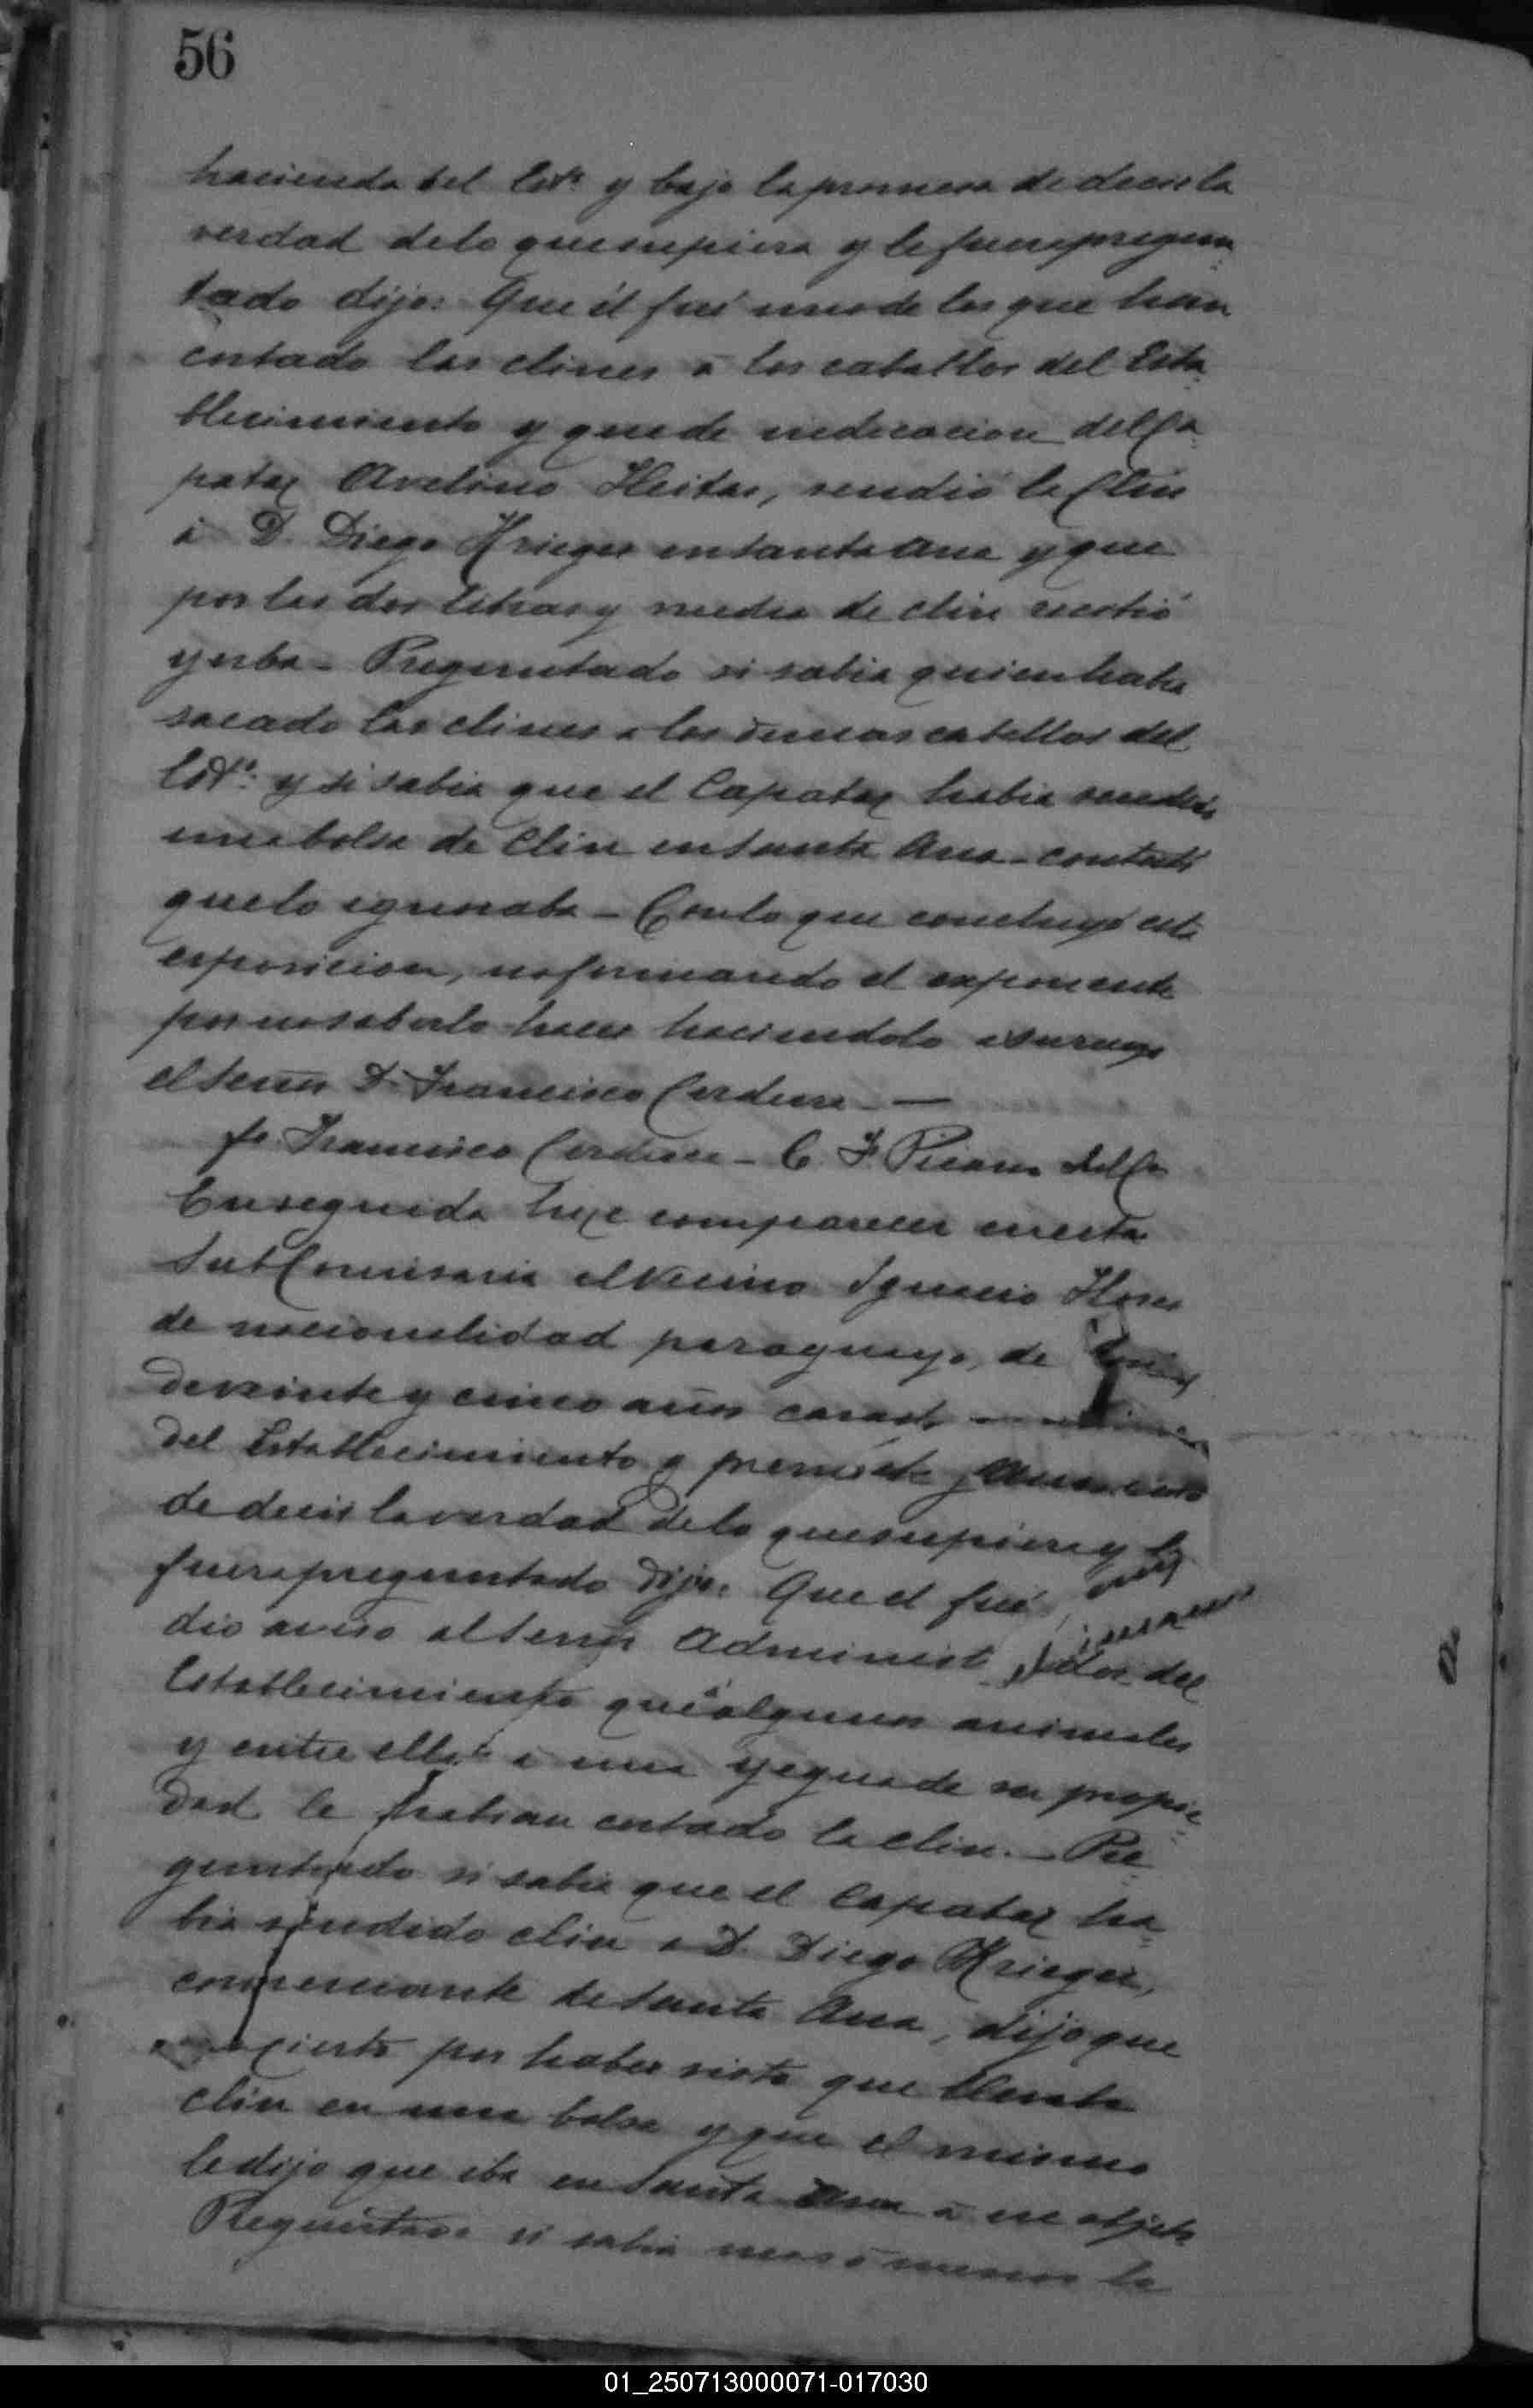 56
hacienda del Estº y bajo la promesa de decir la
verdad de lo que supiera y le fuera pregun
tado dijo: Que él fué uno de los que han
cortado las clines á los caballos del Esta
blecimiento y que de indicacion del Ca
pataz Avelino, vendió la Clin
á D. Diego Krieger en Santa Ana y que
por las dos libras y media de clin recibió
yerba - Preguntado si sabia quien habia
sacado las clines a los demas caballos del
Estº y si sabia que el Capataz habia vendido
una bolsa de Clin en Santa Ana - contestó
que lo ignoraba - Con lo que concluyó esta
exposicion, no firmando el exponente
por no saberlo hacer haciendolo a su ruego
el Señor D. Francisco
fo Francisco - C. F.
Enseguida hize comparecer en esta
Sub Comisaria al vecino Ignacio Flores
de nacionalidad paraguayo, de
de veinte y cinco años casado
del Establecimiento y
de decir la verdad de lo que supiera y le
fuera preguntado dijo: Que el fué
dió aviso al Señor Administ dor del
Establecimiento que algunos animales
y entre ellos a una yegua de su propie
dad le habian cortado la clin. - Pre
guntado si sabia que el Capataz ha
bia vendido clin a D. Diego Krieger,
comerciante de Santa Ana, dijo que
cierto por haber visto que llevaba
clin en una bolsa y que el mismo
le dijo que iba en Santa Ana á ese objeto
Preguntado si sabia mas ó menos la
01_250713000071-017030